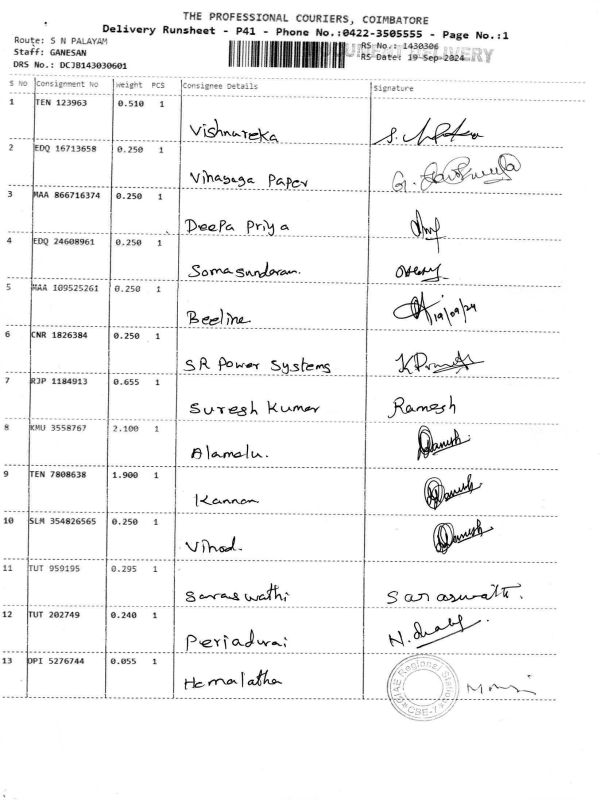 THE PROFESSIONAL COURIERS, COIMBATORE
Delivery Runsheet - P41 - Phone No.:0422-3505555 - Page No.:1
Route: S N PALAYAM
Staff: GANESAN
DRS No.: DCJB143030601
RS No.: 1430306
DELIVERY
RS Date: 19-Sep-2024
S No Consignment No Weight PCS Consignee Details Signature
1 TEN 123963 0.510 1
Vishnureka
2 EDQ 16713658 0.250 1
Vinayaga Paper G.
3 MAA 866716374 0.250 1
Deepa Priya
4 EDQ 24608961 0.250 1
Somasundaram
5 MAA 109525261 0.250 1
Beeline 19/09/24
6 CNR 1826384 0.250 1
SR Power Systems
7 RJP 1184913 0.655 1
Suresh Kumar Ramesh
8 KMU 3558767 2.100 1
Alamelu.
9 TEN 7808638 1.900 1
Kannan
10 SLM 354826565 0.250 1
Vinod.
11 TUT 959195 0.295 1
Saraswathi Saraswathi.
12 TUT 202749 0.240 1
Periadurai
13 OPI 5276744 0.055 1
Hemalatha
Regional Station
CBE-7